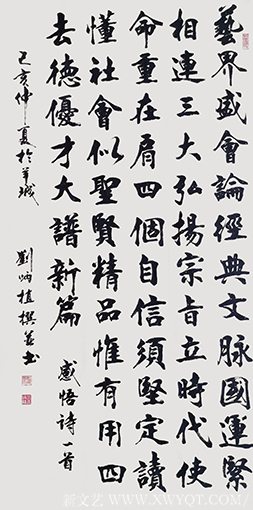 藝界盛會論經典文脈國運緊
相連三大弘揚宗旨立時代使
命重在肩四個自信須堅定讀
懂社會似聖賢精品惟有用四
去德優才大譜新篇
感悟诗一首
己亥仲夏於羊城
劉炳植撰並书
新文艺 WWW.XWYQT.COM